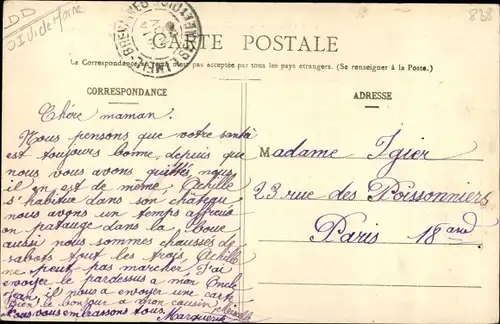 DD
838
CARTE POSTALE
La Correspondance au recto n'est pas acceptée par tous les pays étrangers. (Se renseigner à la Poste.)
CORRESPONDANCE
Chère maman.
Nous pensons que votre santé
est toujours bonne, depuis que
nous vous avons quittés nous
il en est de même, Achille
s'habitue dans son château
nous avons un temps affreux
on patauge dans la boue
aussi nous sommes chaussés de
sabots tout les trois, Achille
ne peut pas marcher. J'ai
envoyer le pardessus a mon Oncle
Jean, il nous a envoyer une carte
Bien le bonjour a mon cousin
Nous vous embrassons tous. Marguerite
ADRESSE
Madame Igier
23 rue des Poissonniers
Paris 18